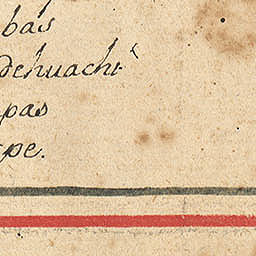 bas
dehuachi
pas
pe.